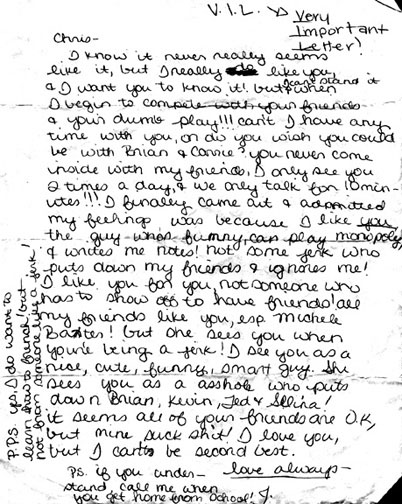 V.I.L. → Very
Important
Letter!
Chris-
I know it never really seems
like it, but I really like you
& I want you to know it! but I can't stand it when
I begin to compete with your friends
& your dumb play!!! can't I have any
time with you, or do you wish you could
be with Brian & Connie? you never come
inside with my friends, I only see you
2 times a day, & we only talk for 10 min-
utes!!! I finaley came out & admitted
my feelings was because I like you
the guy whos funny, can play monopoly,
& writes me notes! not some jerk who
puts down my friends & ignores me!
I like you for you, not someone who
has to show off to have friends! all
my friends like you, esp. Michele
Baxter! but she sees you when
you're being a jerk! I see you as a
nice, cute, funny, smart guy. She
sees you as a asshole who puts
down Brian, Kevin, Jed & Selina!
it seems all of your friends are O.K,
but mine suck shit! I love you,
but I can't be second best.
love always-
P.S. if you under-
stand, call me when
you get home from school! J.
P.P.S. yes, I do want to
learn how to french! but
not from someone like a jerk!